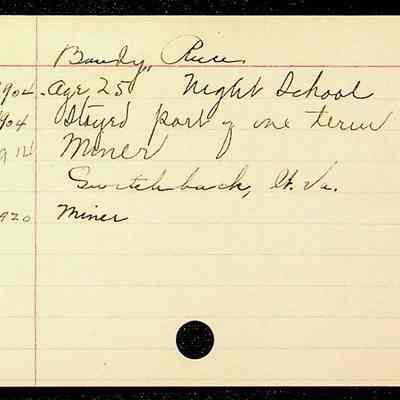 Bandy, Reese
1904. Age, 25 Night School
1904 Stayed part of one term
1912 Miner
Switchback, W. Va.
1920 Miner